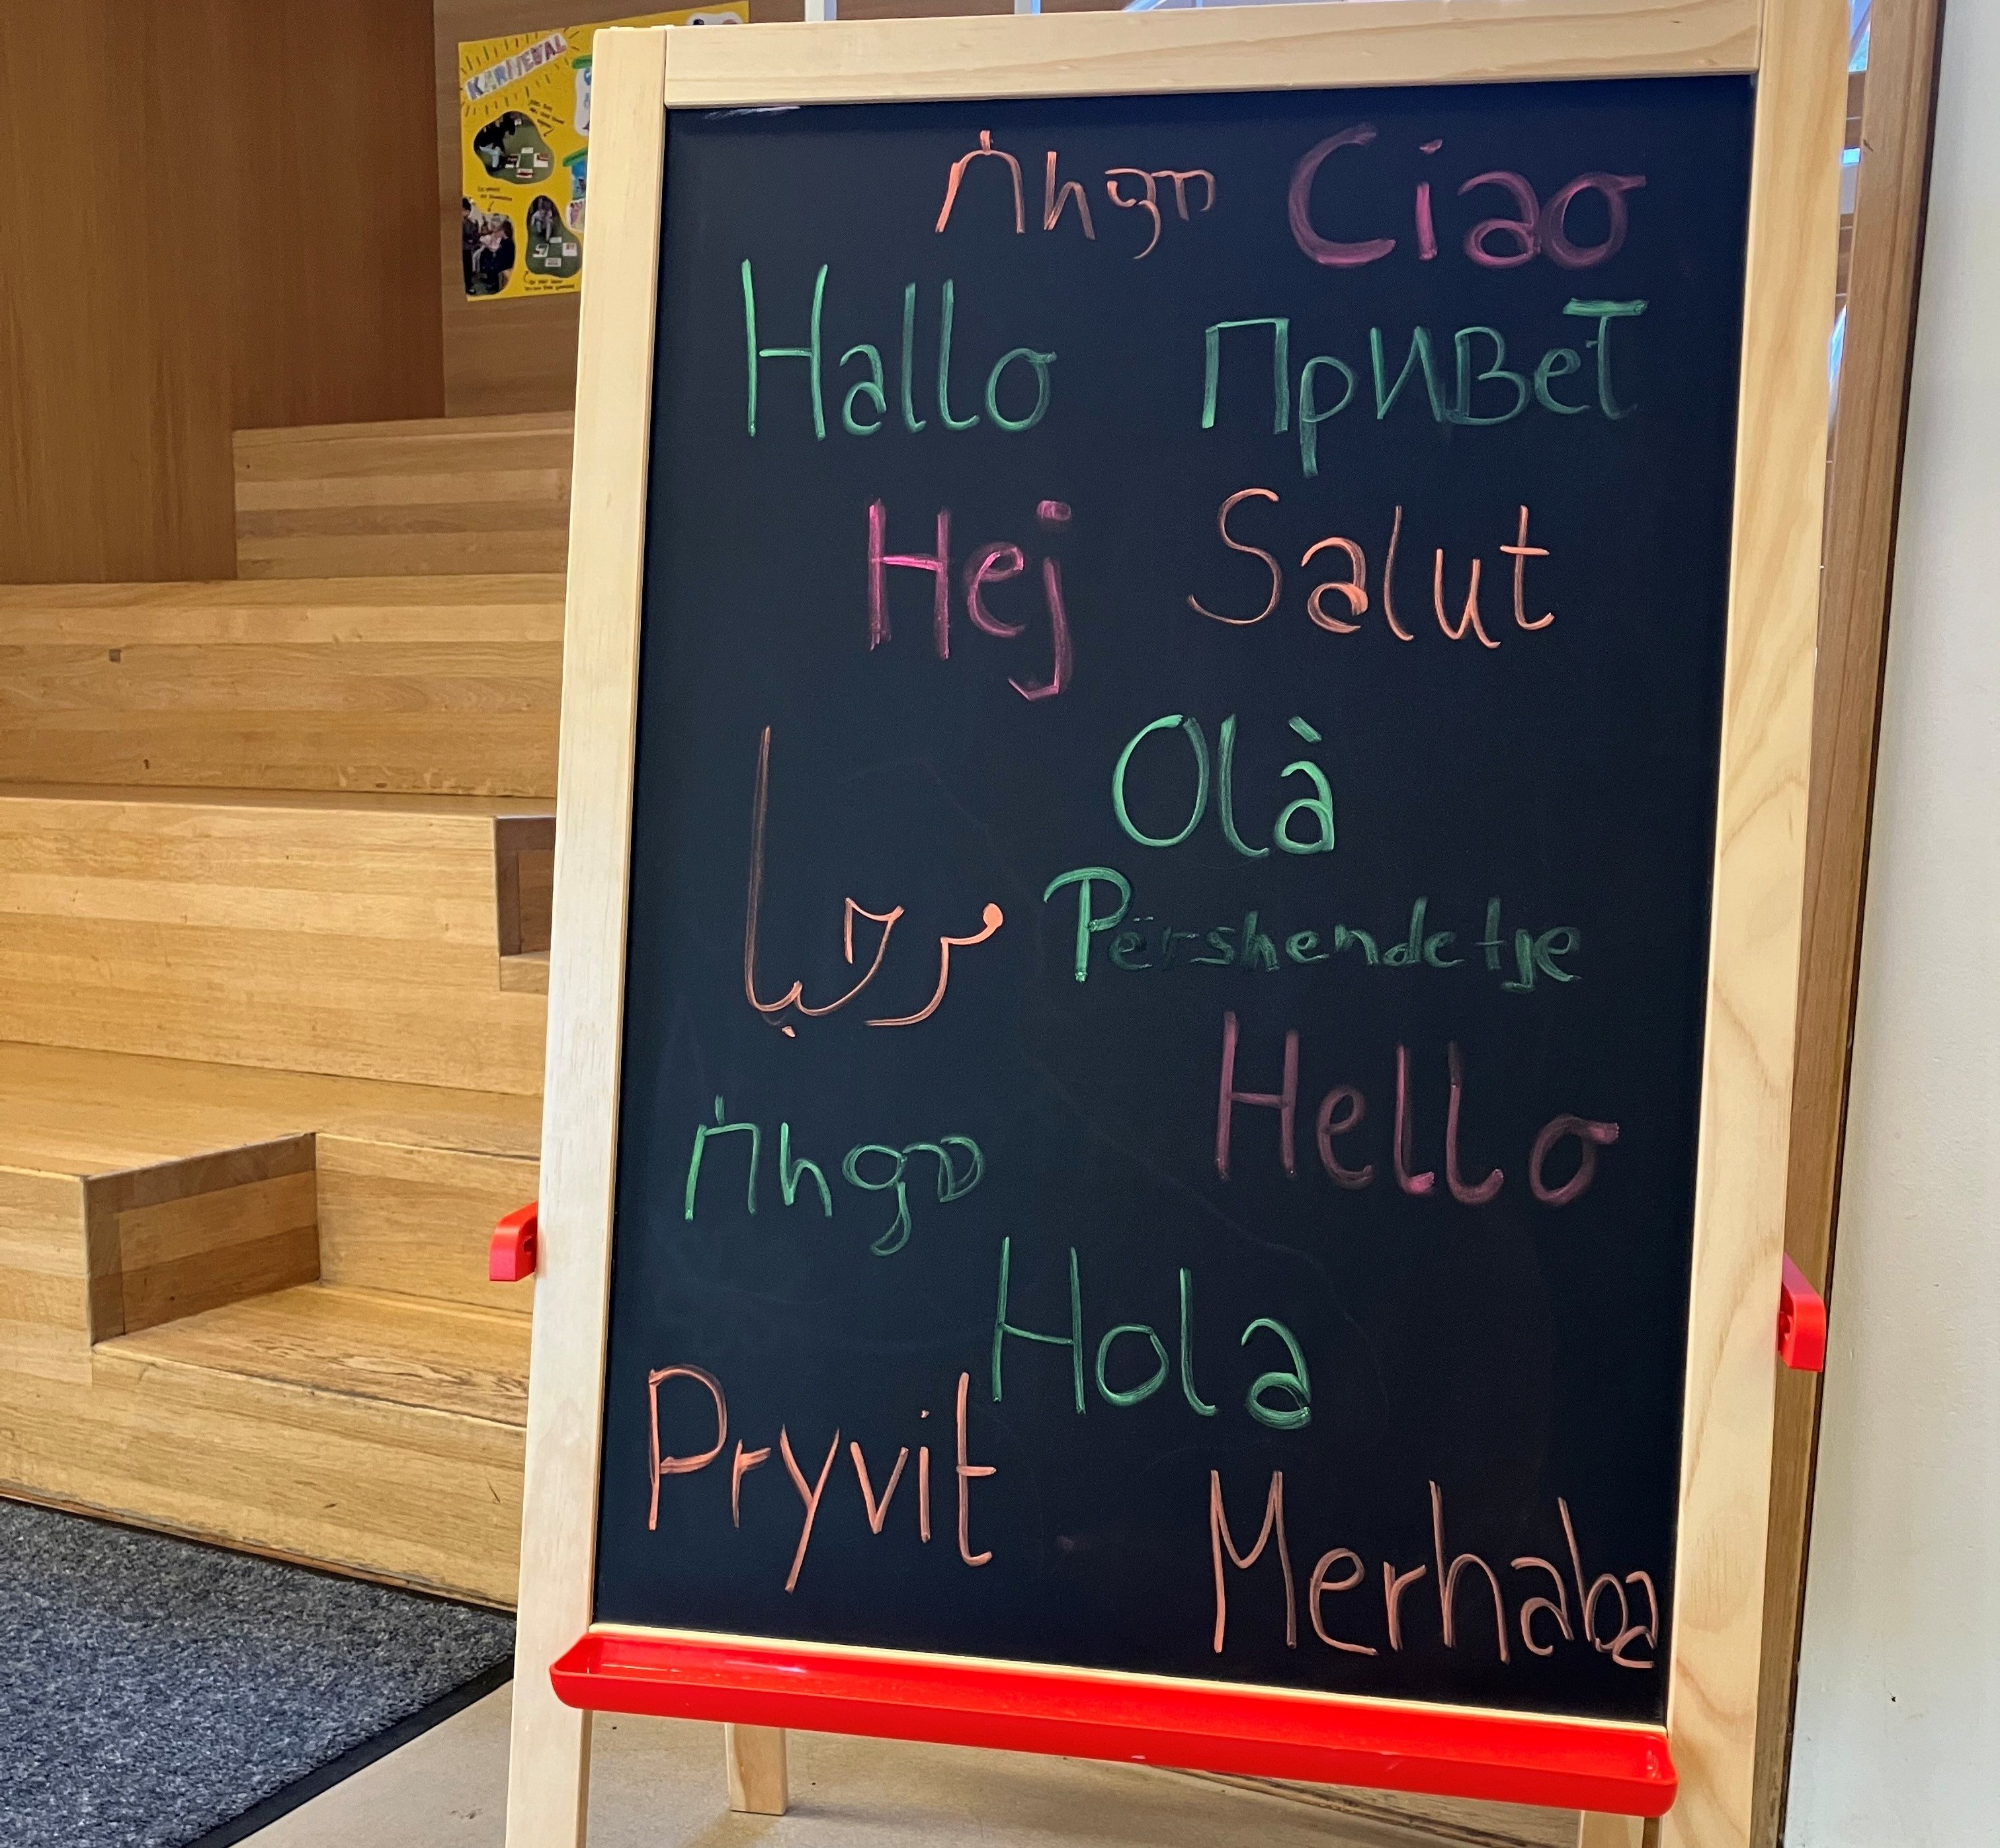 KARNEVAL
ሰላም Ciao
Hallo Привет
Hej Salut
Olà
مرحبا Përshendetje
Hello
ሰላም
Hola
Pryvit
Merhaba